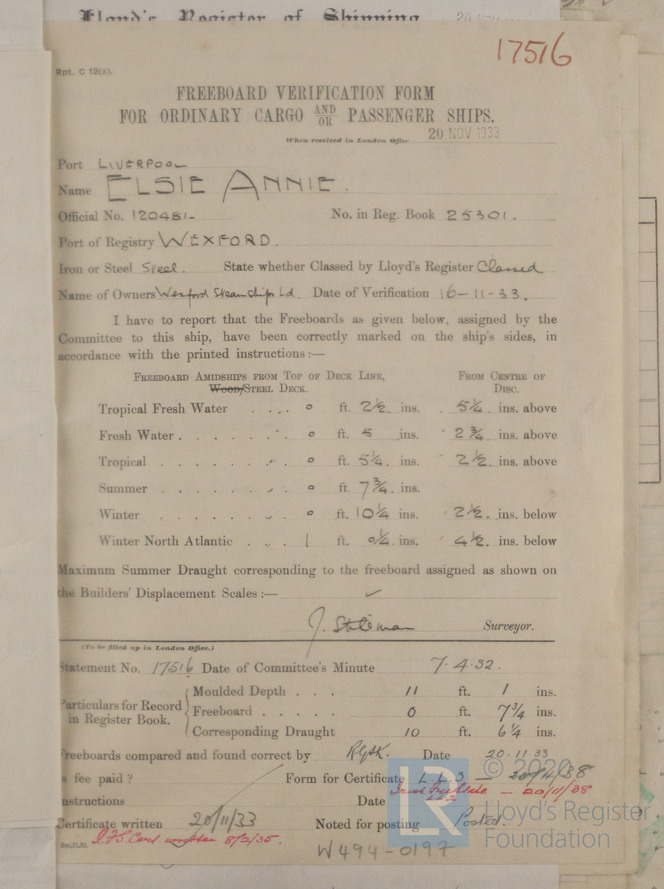 Lloyd's Register of Shipping
17516
Rpt. C 12(a).
FREEBOARD VERIFICATION FORM
FOR ORDINARY CARGO AND OR PASSENGER SHIPS.
When received in London Office 20 NOV 1933
Port LIVERPOOL
Name ELSIE ANNIE.
Official No. 120481. No. in Reg. Book 25301.
Port of Registry WEXFORD.
Iron or Steel Steel. State whether Classed by Lloyd's Register Classed
Name of Owners Wexford Steamships Ld. Date of Verification 16-11-33.
I have to report that the Freeboards as given below, assigned by the
Committee to this ship, have been correctly marked on the ship's sides, in
accordance with the printed instructions:—
FREEBOARD AMIDSHIPS FROM TOP OF DECK LINE, FROM CENTRE OF
WOOD/STEEL DECK. DISC.
Tropical Fresh Water . . . . 0 ft. 2½ ins. 5¼ ins. above
Fresh Water . . . . . . 0 ft. 5 ins. 2¾ ins. above
Tropical . . . . . . . 0 ft. 5¼ ins. 2½ ins. above
Summer . . . . . . . 0 ft. 7¾ ins.
Winter . . . . . . . 0 ft. 10¼ ins. 2½ ins. below
Winter North Atlantic . . . 1 ft. 0¼ ins. 4½ ins. below
Maximum Summer Draught corresponding to the freeboard assigned as shown on
the Builders' Displacement Scales:— ✓
Surveyor.
(To be filled up in London Office.)
Statement No. 17516 Date of Committee's Minute 7.4.32.
Particulars for Record in Register Book.
Moulded Depth . . . 11 ft. 1 ins.
Freeboard . . . . . 0 ft. 7¾ ins.
Corresponding Draught 10 ft. 6¼ ins.
Freeboards compared and found correct by Date 20.11.33
Is fee paid? Form for Certificate L L 3 — 20/4/38
Instructions Date — 20/11/38
Certificate written 20/11/33 Noted for posting Posted.
8/2/35.
W494-0197
LR
© 2020
Lloyd's Register
Foundation